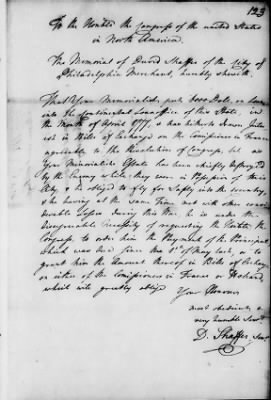 123
To the Honble the Congress of the united States
in North America.
The Memorial of David Shaffer of the City of
Philadelphia Merchant, humbly sheweth.
That Your Memorialist, put Dolrs. on Loan
into the Continental Loan office of this State, in
the Month of April 1777, & has hitherto drawn Inter
est in Bills of Exchange on the Comissioners in France
agreeable to the Resolution of Congress, but as
Your Memorialists Estate has been chiefly destroyed
by the Enemy while they were in Possession of this
City, & he obliged to fly for Safety into the country,
& he having at the same Time met with other consi
derable Losses during this War, he is under the
disagreeable Necessity of requesting the Honble. the
Congress, to order him the Payment of the Principal,
which was due since the 1st. of May last, or to
grant him the Amount thereof in Bills of Exchange
on either of the Comissioners in France or Holland,
which will greatly oblige
Your Honours
most obedient &
very humble Servt.
D. Shaffer, Senr